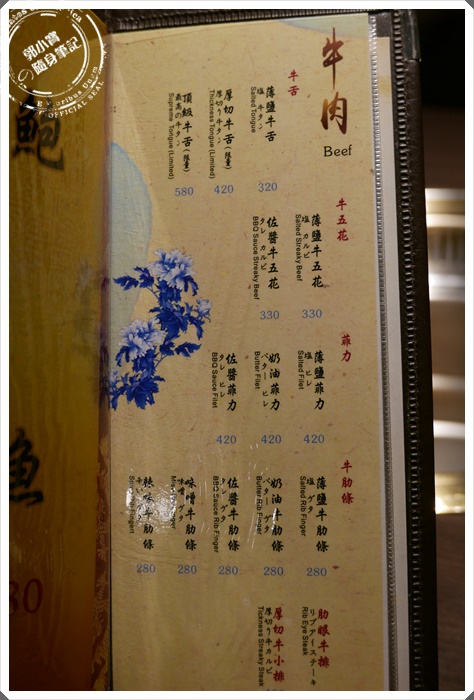 郭小寶
隨身筆記
E Pluribus Unum
OFFICIAL SEAL
鮑
魚
80
牛肉
Beef
牛舌
薄鹽牛舌
塩 牛タン
Salted Tongue
320
厚切牛舌(限量)
厚切り牛タン
Thickness Tongue (Limited)
420
頂級牛舌(限量)
最高の牛タン
Supreme Tongue (Limited)
580
牛五花
薄鹽牛五花
塩 カルビ
Salted Streaky Beef
330
佐醬牛五花
タレ カルビ
BBQ Sauce Streaky Beef
330
菲力
薄鹽菲力
塩 ヒレ
Salted Filet
420
奶油菲力
バター ヒレ
Butter Filet
420
佐醬菲力
タレ ヒレ
BBQ Sauce Filet
420
牛肋條
薄鹽牛肋條
塩 ゲタ
Salted Rib Finger
280
奶油牛肋條
バター ゲタ
Butter Rib Finger
280
佐醬牛肋條
タレ ゲタ
BBQ Sauce Rib Finger
280
味噌牛肋條
味噌 ゲタ
280
辣味牛肋條
280
肋眼牛排
リブアイステーキ
Rib Eye Steak
厚切牛小排
厚切り牛カルビ
Tickness Streaky Steak